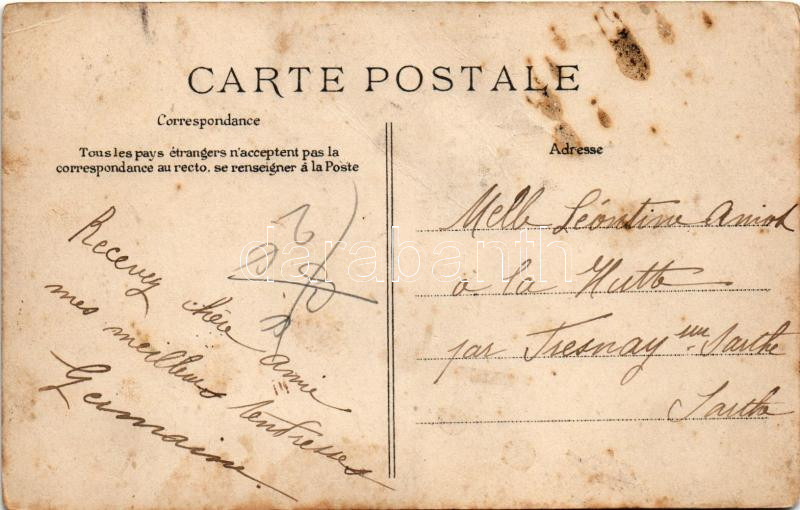 CARTE POSTALE
Correspondance
Tous les pays étrangers n'acceptent pas la
correspondance au recto. se renseigner á la Poste
Adresse
Recevez chère amie
mes meilleures tendresses
Germaine.
Melle Léontine
à la Hutte
par Fresnay sur Sarthe
Sarthe
darabanth